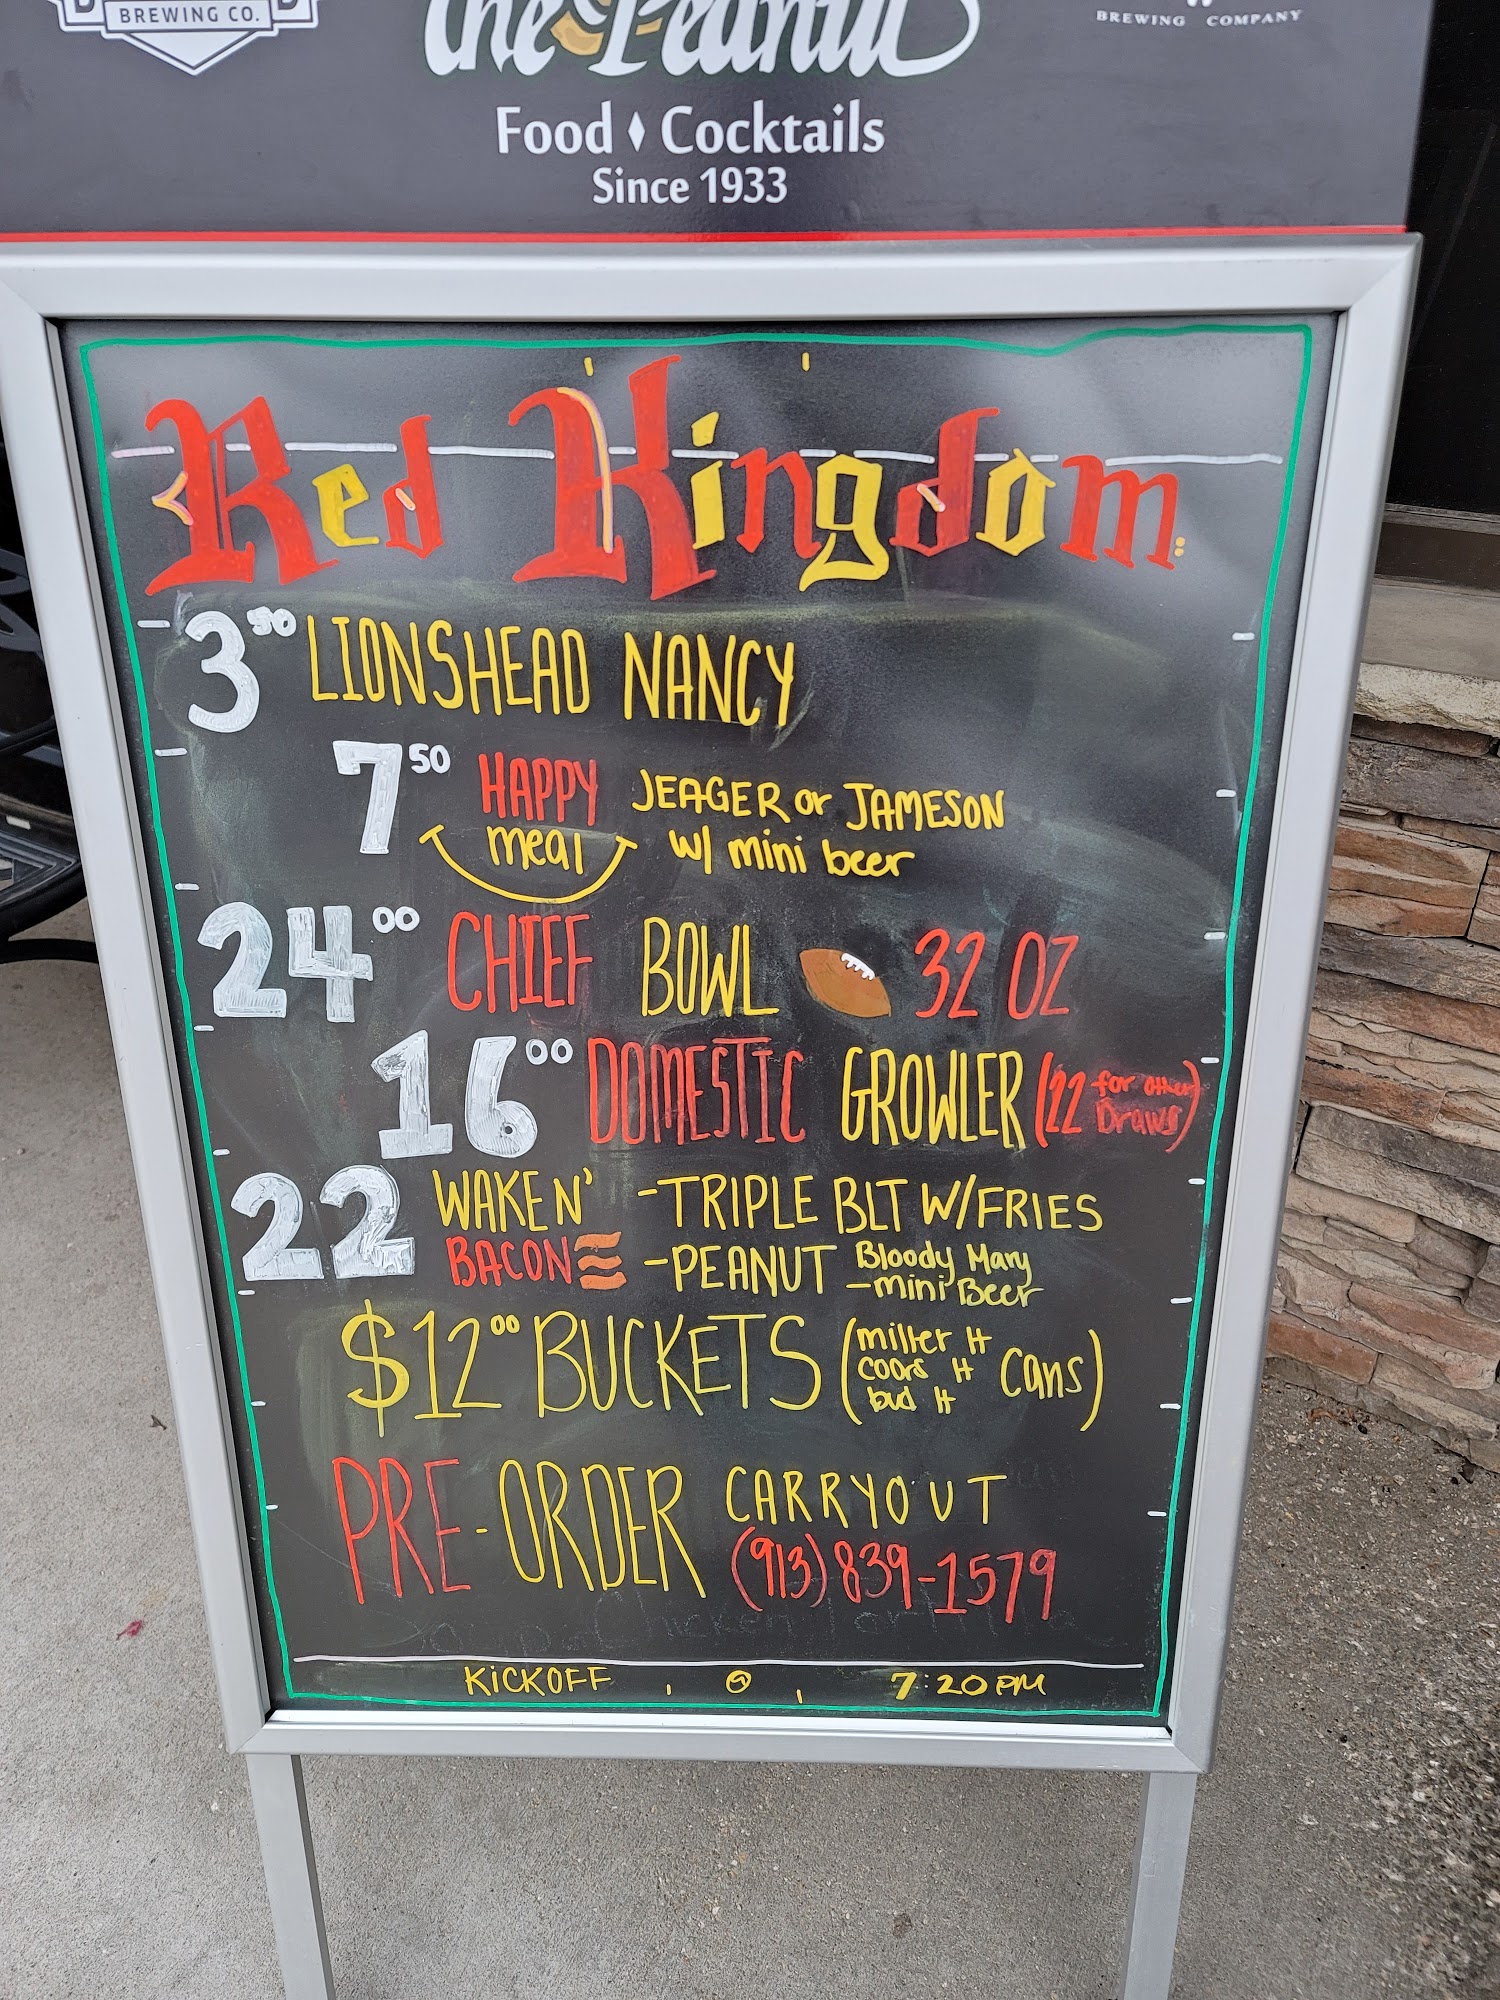 BREWING CO.
the Peanut
BREWING COMPANY
Food ♦ Cocktails
Since 1933
Red Kingdom:
3⁵⁰ LIONSHEAD NANCY
7⁵⁰ HAPPY meal JEAGER or JAMESON
w/ mini beer
24⁰⁰ CHIEF BOWL 32 OZ
16⁰⁰ DOMESTIC GROWLER (22 for other Draws)
22 WAKE N' -TRIPLE BLT W/FRIES
BACON -PEANUT Bloody Mary
-mini Beer
$12⁰⁰ BUCKETS (miller lt
coors lt cans)
bud lt
PRE-ORDER CARRYOUT
(913) 839-1579
KICKOFF @ 7:20 PM